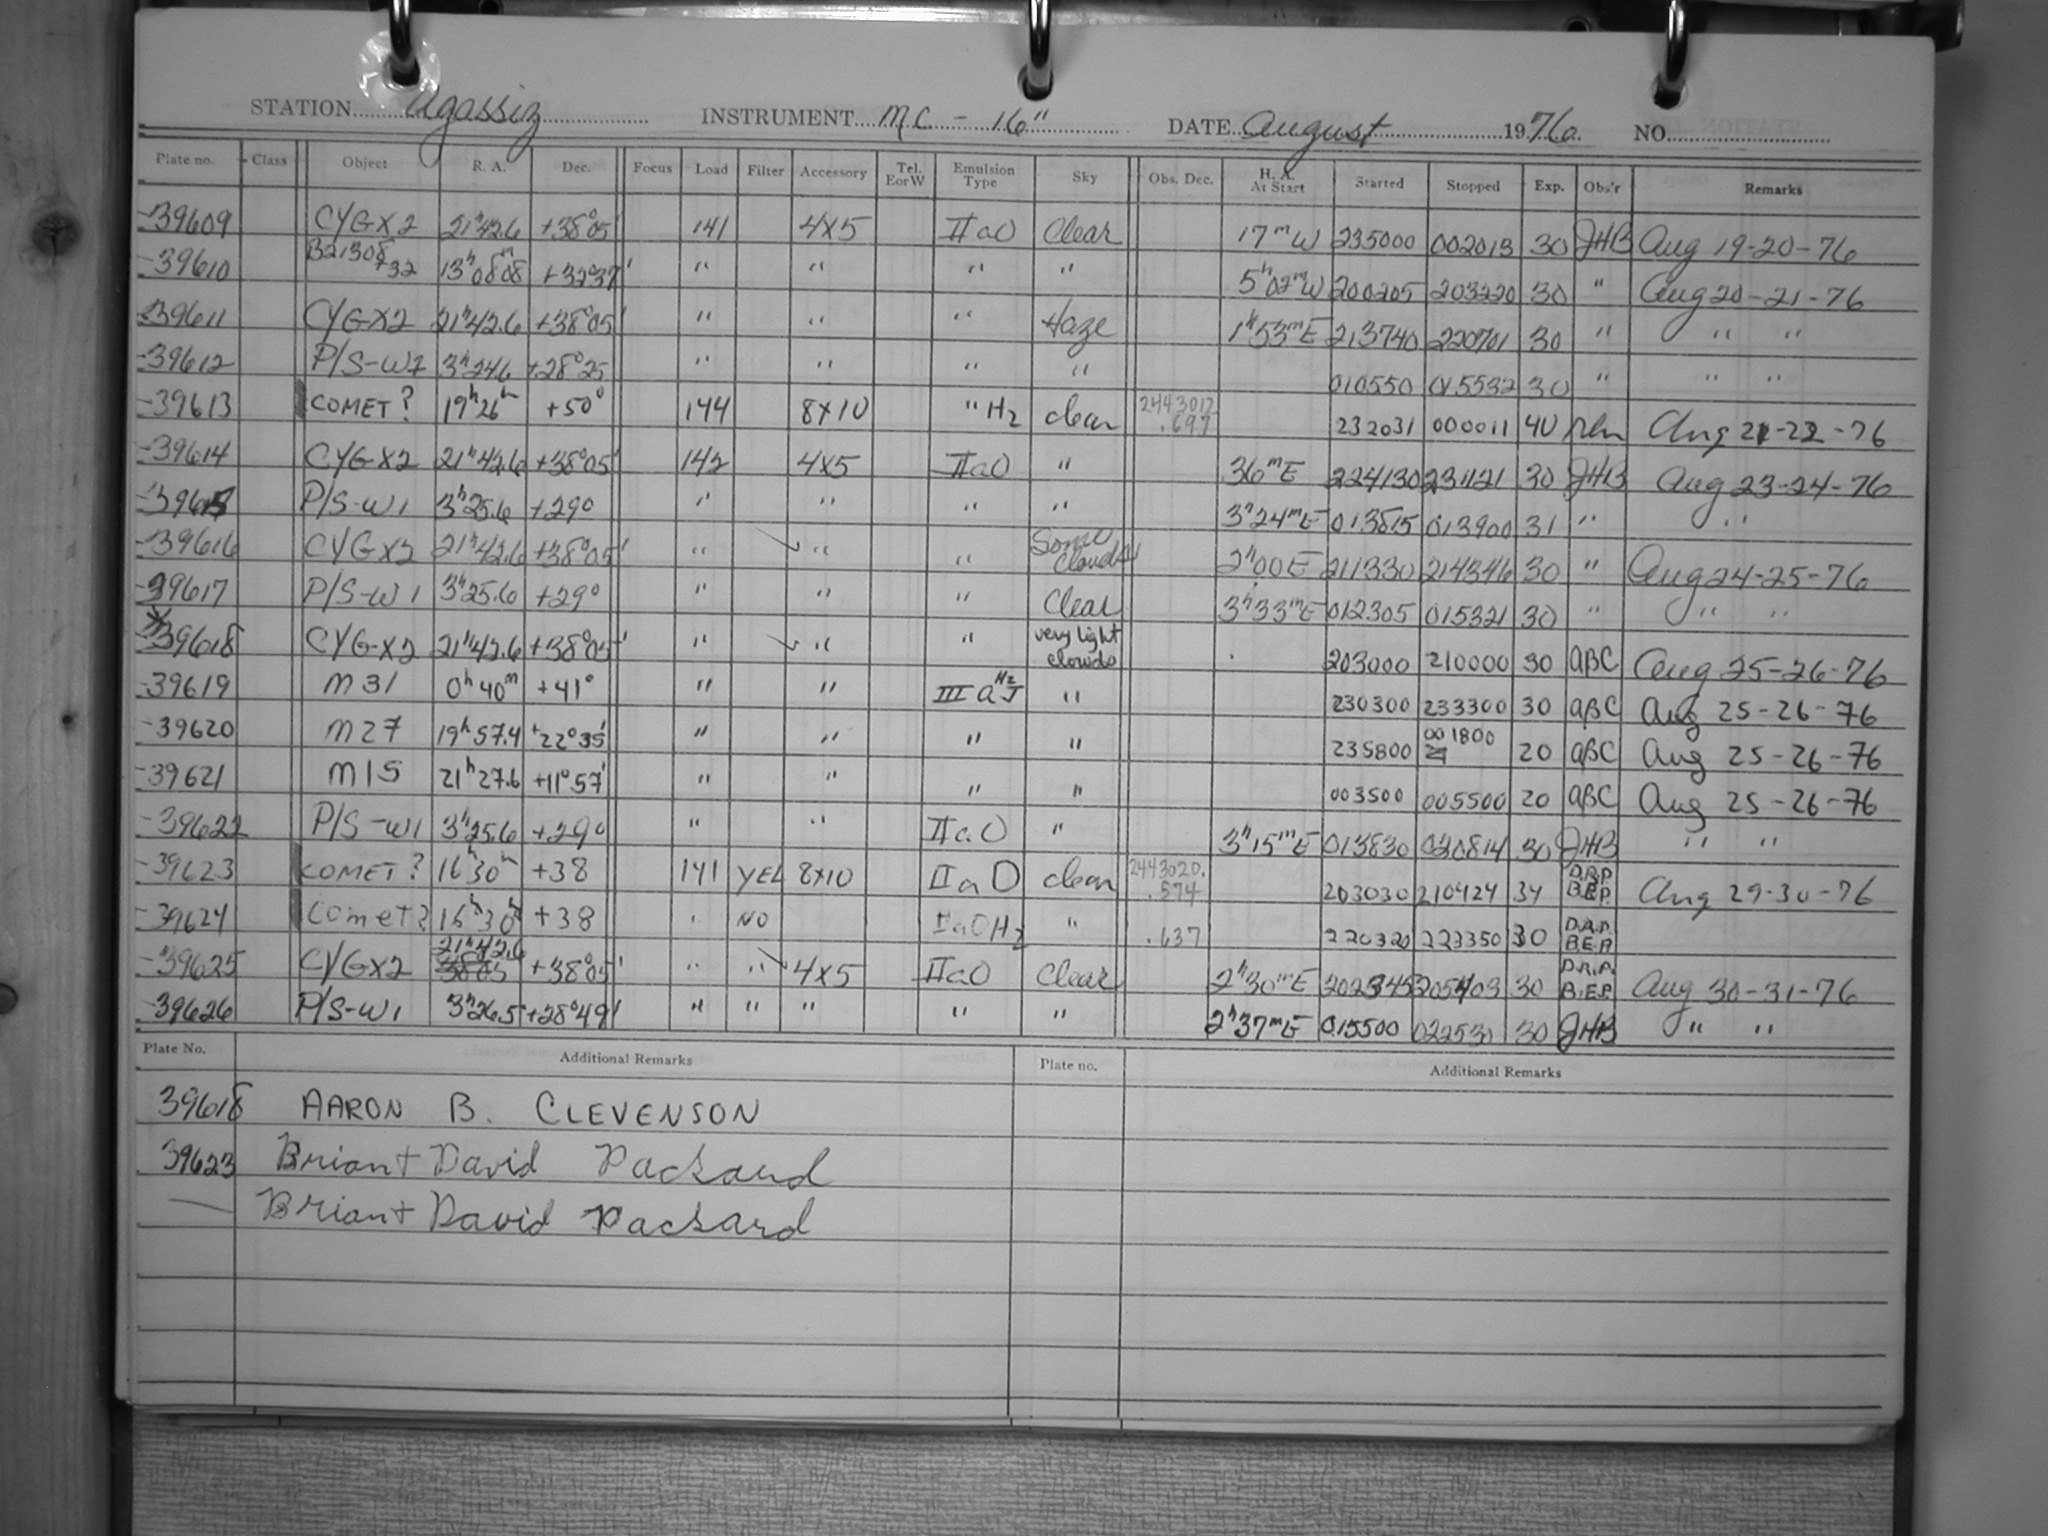 STATION Agassiz INSTRUMENT MC - 16" DATE August 1976 NO.
Plate no. Class Object R. A. Dec. Focus Load Filter Accessory Tel. E or W Emulsion Type Sky Obs. Dec. H. A. At Start Started Stopped Exp. Obs'r Remarks
-39609 CYGX2 21h42.6 +38°05' 141 4x5 IIaO Clear 17mW 235000 002013 30 JHB Aug 19-20-76
-39610 B21308+32 13h08m08 +32°37' " " " " 5h02mW 200205 203220 30 " Aug 20-21-76
-39611 CYGX2 21h42.6 +38°05' " " " Haze 1h53mE 213740 220701 30 " " "
-39612 P/S-W2 3h24.6 +28°25 " " " " 010550 015532 30 " " "
-39613 COMET? 19h26m +50° 144 8x10 " H2 clear 2443012.697 232031 000011 40 Aug 21-22-76
-39614 CYGX2 21h42.6 +38°05' 142 4x5 IIaO " 36mE 224130 231121 30 JHB Aug 23-24-76
-39615 P/S-W1 3h25.6 +29° " " " " 3h24mE 013815 013900 31 " "
-39616 CYGX2 21h42.6 +38°05' " ✓ " " Some Clouds 2h00E 211330 214346 30 " Aug 24-25-76
-39617 P/S-W1 3h25.6 +29° " " " Clear 3h33mE 012305 015321 30 " " "
-39618 CYGX2 21h42.6 +38°05' " ✓ " " very light clouds 203000 210000 30 ABC Aug 25-26-76
-39619 M31 0h40m +41° " " IIIaJ H2 " 230300 233300 30 ABC Aug 25-26-76
-39620 M27 19h57.4 +22°35' " " " " 235800 001800 20 ABC Aug 25-26-76
-39621 M15 21h27.6 +11°57' " " " " 003500 005500 20 ABC Aug 25-26-76
-39622 P/S-W1 3h25.6 +29° " " IIaO " 3h15mE 013830 020814 30 JHB " "
-39623 COMET? 16h30m +38 141 YEL 8x10 IIaD clear 2443020.574 203030 210424 34 D.R.P. B.E.P. Aug 29-30-76
-39624 Comet? 16h30m +38 " NO IIaOH2 " .637 220320 223350 30 D.R.P. B.E.P.
-39625 CYGX2 21h42.6 +38°05' " " ✓ 4x5 IIaO Clear 2h30mE 202345 205403 30 D.R.P. B.E.P. Aug 30-31-76
-39626 P/S-W1 3h26.5 +28°49' " " " " " 2h37mE 015500 022530 30 JHB " "
Plate No. Additional Remarks Plate no. Additional Remarks
39618 AARON B. CLEVENSON
39623 Brian + David Packard
— Brian + David Packard